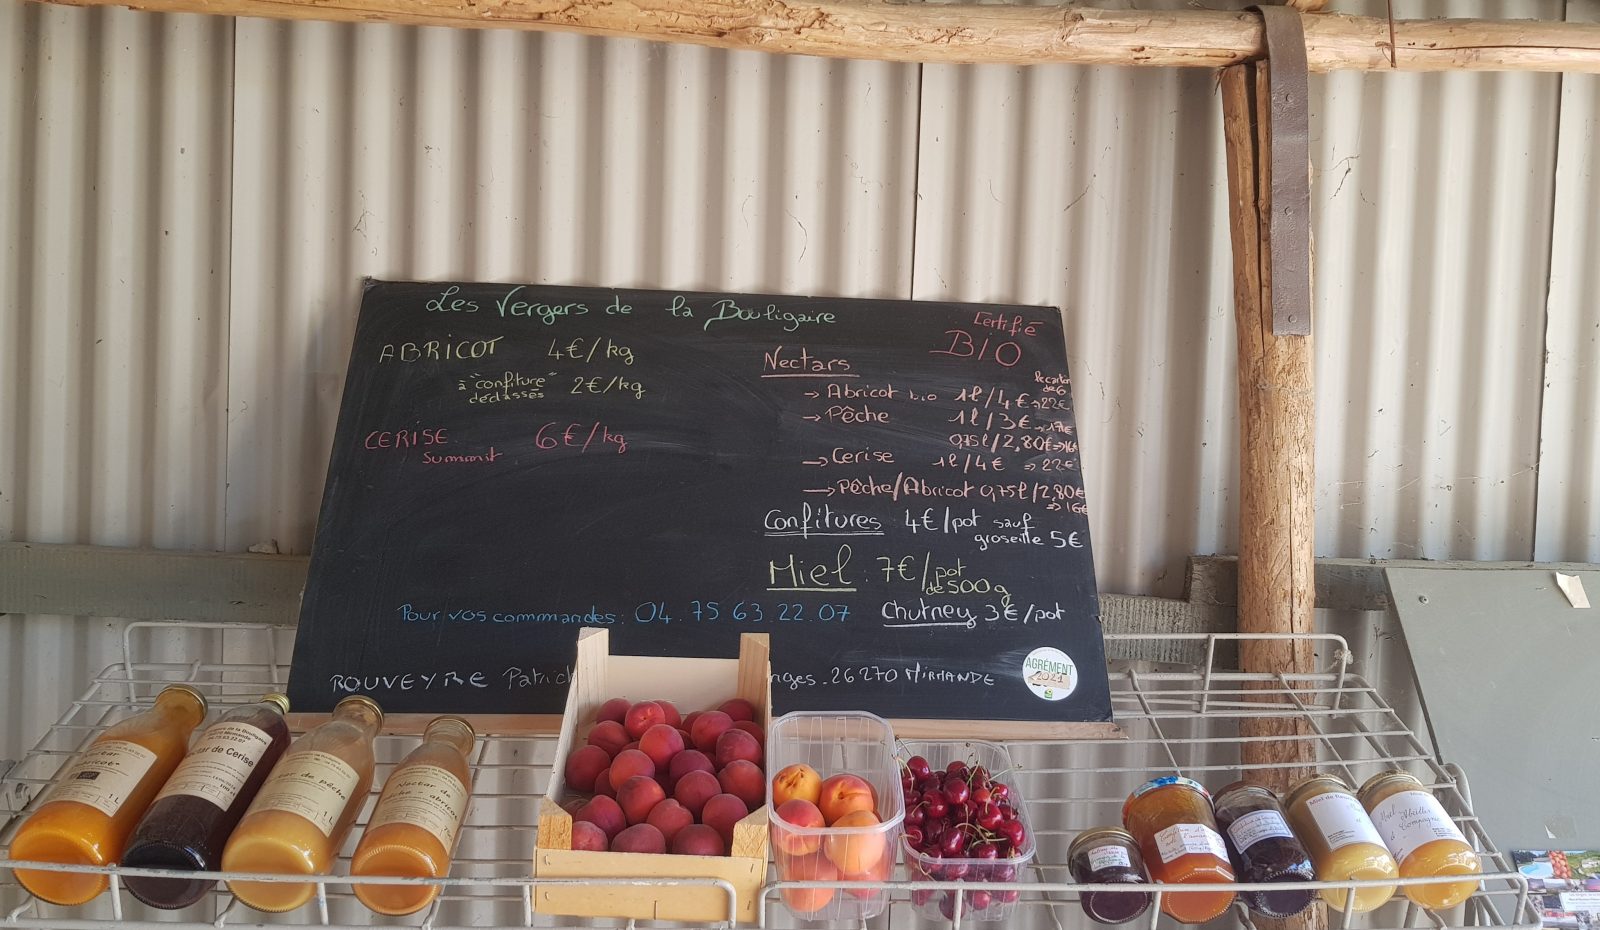 Les Vergers de la Bouligaire
Certifié
BIO
ABRICOT 4€/kg
à "confiture" 2€/kg
déclassés
CERISE 6€/kg
Summit
Nectars
le carton
de 6
→ Abricot bio 1l/4€ → 22€
→ Pêche 1l/3€ → 17€
0,75l/2,80€ → 16€
→ Cerise 1l/4€ → 22€
→ Pêche/Abricot 0,75l/2,80€
⇒ 16€
Confitures 4€/pot sauf
groseille 5€
Miel : 7€/pot
de 500g
Pour vos commandes : 04.75.63.22.07 Chutney 3€/pot
ROUVEYRE Patric nges - 26270 MIRMANDE
AGRÉMENT
2021
Nectar
1L
tar de Cerise
tar de pêche
1L
Nectar de
abricot